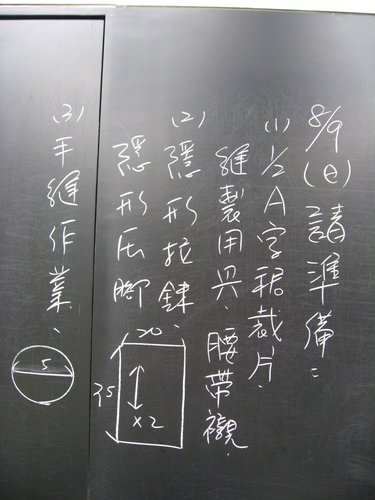 8/9(e)請準備：
(1) 1/2 A字裙裁片.
縫製用具.腰帶襯.
(2) 隱形拉鍊、
隱形压腳
20
35
×2
(3) 手縫作業、
5